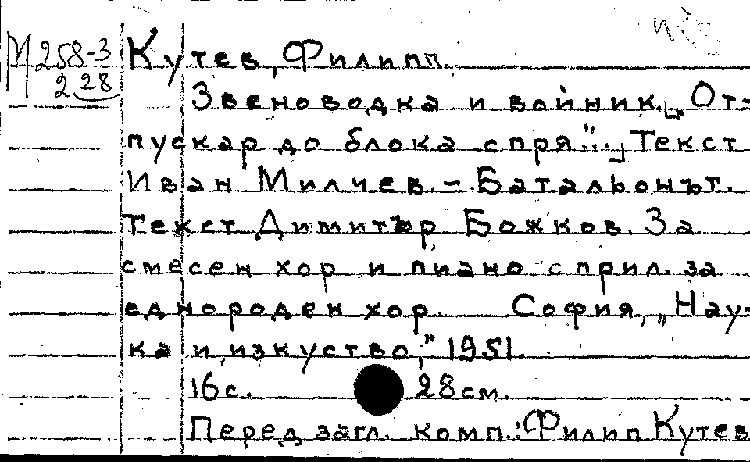 М 258-3 Кутев, Филипп.
2 28
Звеноводка и войник. [„От-
пускар до блока спря“.] Текст
Иван Милчев. – Батальонът.
Текст Димитър Божков. За
смесен хор и пиано с прил. за
еднороден хор. София, „Нау-
ка и изкуство,“ 1951.
16 с. 28 см.
Перед загл. комп.: Филип Кутев